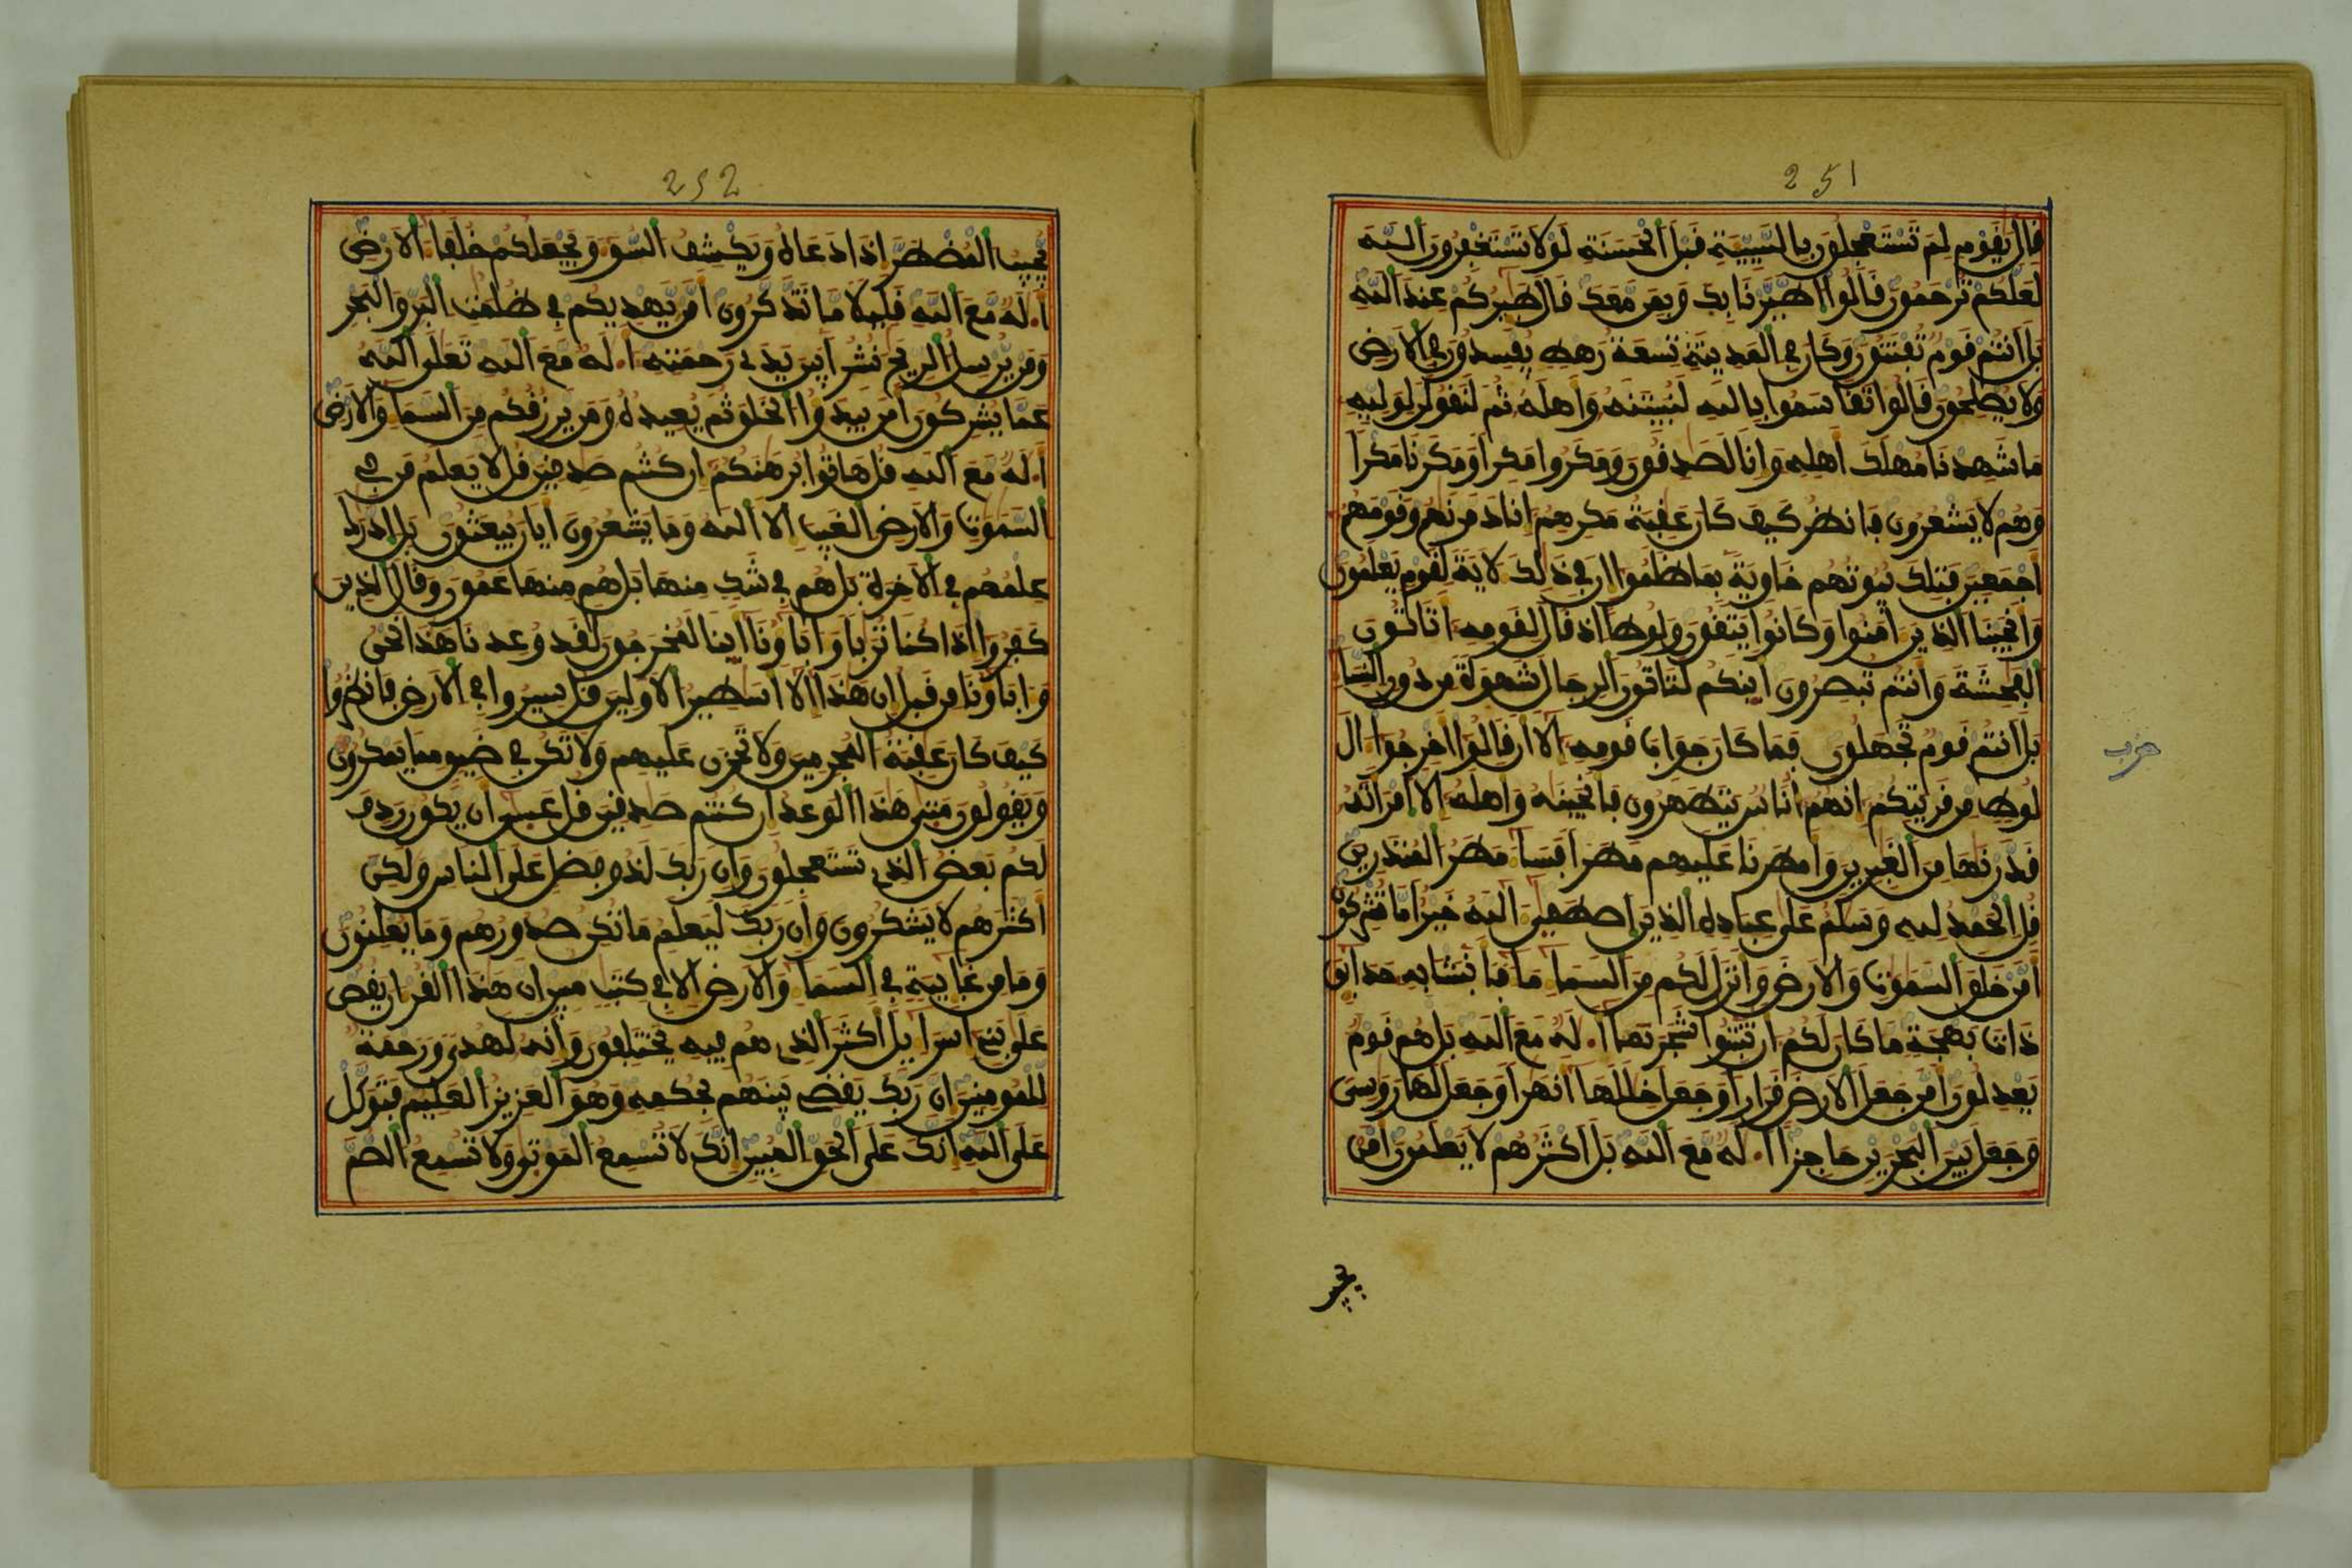 251
قال يقوم لم تستعجلون بالسيية قبل الحسنة لولا تستغفرون الله
لعلكم ترحمون قالوا اطيرنا بك وبمن معك قال طيركم عند الله
بل انتم قوم تفتنون وكان في المدينة تسعة رهط يفسدون في الارض
ولا يصلحون قالوا تقاسموا بالله لنبيتنه واهله ثم لنقولن لوليه
ما شهدنا مهلك اهله وانا لصدقون ومكروا مكرا ومكرنا مكرا
وهم لا يشعرون فانظر كيف كان عقبة مكرهم انا دمرنهم وقومهم
اجمعين فتلك بيوتهم خاوية بما ظلموا ان في ذلك لاية لقوم يعلمون
وانجينا الذين امنوا وكانوا يتقون ولوطا اذ قال لقومه اتاتون
الفحشة وانتم تبصرون اينكم لتاتون الرجال شهوة من دون النسا
بل انتم قوم تجهلون فما كان جواب قومه الا ان قالوا اخرجوا ال
لوط من قريتكم انهم اناس يتطهرون فانجينه واهله الا امراته
قدرنها من الغبرين وامطرنا عليهم مطرا فسا مطر المنذرين
قل الحمد لله وسلم على عباده الذين اصطفى الله خير اما تشركون
امن خلق السموت والارض وانزل لكم من السما ما فانبتنا به حدايق
ذات بهجة ما كان لكم ان تنبتوا شجرتها ا.له مع الله بل هم قوم
يعدلون امن جعل الارض قرارا وجعل خللها انهرا وجعل لها روسي
وجعل بين البحرين حاجزا ا.له مع الله بل اكثرهم لا يعلمون امن
حزب
يجيب
252
يجيب المضطر اذا دعاه ويكشف السو ويجعلكم خلفا الارض
ا.له مع الله قليلا ما تذكرون امن يهديكم في ظلمت البر والبحر
ومن يرسل الريح نشرا بين يدي رحمته ا.له مع الله تعلى الله
عما يشركون امن يبدوا الخلق ثم يعيده ومن يرزقكم من السما والارض
ا.له مع الله قل هاتوا برهنكم ان كنتم صدقين قل لا يعلم من في
السموت والارض الغيب الا الله وما يشعرون ايان يبعثون بل ادرك
علمهم في الاخرة بل هم في شك منها بل هم منها عمون وقال الذين
كفروا اذا كنا تربا واباونا اينا لمخرجون لقد وعدنا هذا نحن
واباونا من قبل ان هذا الا اسطير الاولين قل سيروا في الارض فانظروا
كيف كان عقبة المجرمين ولا تحزن عليهم ولا تكن في ضيق مما يمكرون
ويقولون متى هذا الوعد ان كنتم صدقين قل عسى ان يكون ردف
لكم بعض الذي تستعجلون وان ربك لذو فضل على الناس ولكن
اكثرهم لا يشكرون وان ربك ليعلم ما تكن صدورهم وما يعلنون
وما من غايبة في السما والارض الا في كتب مبين ان هذا القران يقص
على بني اسرايل اكثر الذي هم فيه يختلفون وانه لهدى ورحمة
للمومنين ان ربك يقضي بينهم بحكمه وهو العزيز العليم فتوكل
على الله انك على الحق المبين انك لا تسمع الموتى ولا تسمع الصم